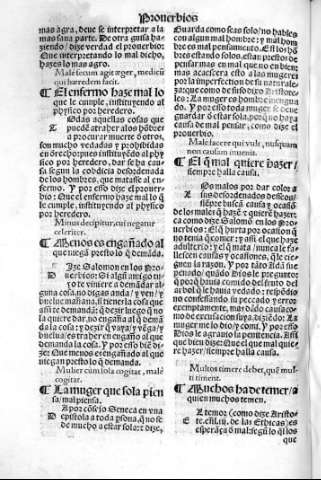 Prouerbios
mas agra, deue se interpretar a la
mas sana parte. De otra guisa ha-
ziendo/ dize verdad el prouerbio:
Que interpretando lo mal dicho,
hazes lo mas agro.
Male secum agit æger, medicū
qui hæredem facit.
¶ El enfermo haze mal lo
que le cumple, instituyendo al
physico por heredero.
Todas aquellas cosas que
puedē atraher a los hōbres
a procurar muerte d otros,
son mucho vedadas y prohibidas
en derecho: pues instituyēdo al phy
sico por heredero, dar se ha cau
sa segun la cobdicia desordenada
de los hombres, que matasse al en-
fermo. Y por esso dize el prouer-
bio: Que el enfermo haze mal lo q̄
le cumple, instituyendo al physico
por heredero.
Minus decipitur, cui negatur
celeriter.
¶ Menos es engañado al
que niegā presto lo q̄ demāda.
Dize Salomon en los Pro-
uerbios: Si algū amigo tu-
yo te viniere a demādar al-
guna cosa, no digas anda/ y ven/ y
buelue mañana, si tienes la cosa que
assi te demandā: q̄ dezir luego q̄ no
la quiere dar, no engaña al q̄ demā
da la cosa: y dezir q̄ vaya/ y vēga/ y
buelua: es traher en engaño al que
demanda la cosa. Y por esso biē di-
ze: Que menos es engañado al que
niegan presto lo que demanda.
Mulier cùm sola cogitat, malè
cogitat.
¶ La muger que sola pien
sa/ mal piensa.
Aporcōsejo Seneca en vna
epistola a toda psona, q̄ no se
de mucho a estar solo: e dize,
Guarda como seas solo/ no hables
con algun mal hombre: y mal hom-
bre es mal pensamiento. Est los hō-
bres estando solos, estan puestos d
pensar mas en mal que no en bien:
mas acaescera esto a las mugeres
por la imperfection de su naturale-
za: que como de suso dize Aristote-
les: La muger es hombre menguā
do. Y por esso toda muger se deue
guardar d estar sola, porq̄ no haya
causa de mal pensar, como dize el
prouerbio.
Malè facere qui vult, nusquam
non causam inuenit.
¶ El q̄ mal quiere hazer/
siempre halla causa.
Los malos por dar color a
sus desordenados desseos:
siempre buscā causa y ocasiō
de los males q̄ hazē e quierē hazer:
e como dize Salomon en los Pro-
uerbios: El q̄ hurta por ocasion q̄
no tenia q̄ comer: y assi el que haze
adulterio: y el q̄ mata/ nunca le fa-
llescen causas y ocasiones, q̄ le cie-
guen la razon. Y por tāto Adā fue
penado/ quādo Dios le preguntó:
e porq̄ hauia comido del fruto del
arbol q̄ le hauia vedado: respōdio
no confessando su peccado y error
exemptamente, mas dādo causa: co-
mo de excusacion suya, diziēdo: La
muger me lo dio/ y comi. Y por esso
Dios le agrauio la penitencia. Assi
que bien dize: Que el que mal quie-
re hazer/ siempre halla causa.
Multos timere debet, quē mul-
ti timent.
¶ Muchos ha de temer/ a
quien muchos temen.
El temor (como dize Aristote-
les, en.iii. de las Ethicas) es
esperāça d mal: segū lo q̄ los
que